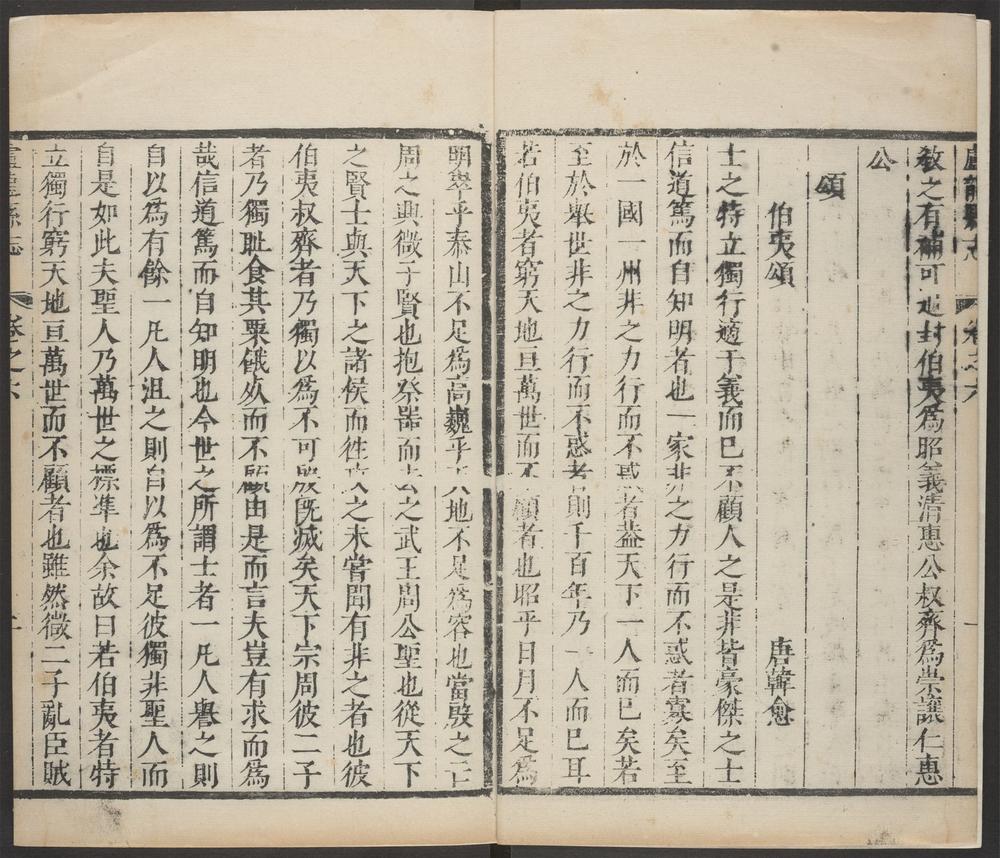 盧龍縣 卷之六 一
教之有補可追封伯夷為昭義清惠公叔齊為崇讓仁惠
公
頌
伯夷頌 唐韓愈
士之特立獨行適于義而已不顧人之是非皆豪傑之士
信道篤而自知明者也一家非之力行而不惑者寡矣至
於一國一州非之力行而不惑者葢天下一人而已矣若
至於舉世非之力行而不惑者則千百年乃一人而已耳
若伯夷者窮天地亘萬世而不顧者也昭乎日月不足爲
明崒乎泰山不足爲高巍乎天地不足爲容也當殷之亡
周之興微子賢也抱祭器而去之武王周公聖也從天下
之賢士與天下之諸侯而徃攻之未嘗聞有非之者也彼
伯夷叔齊者乃獨以爲不可殷旣滅矣天下宗周彼二子
者乃獨耻食其粟餓死而不顧由是而言夫豈有求而爲
哉信道篤而自知明也今世之所謂士者一凡人譽之則
自以爲有餘一凡人沮之則自以爲不足彼獨非聖人而
自是如此夫聖人乃萬世之標準也余故曰若伯夷者特
立獨行窮天地亘萬世而不顧者也雖然微二子亂臣賊
盧龍縣志 卷之六 二